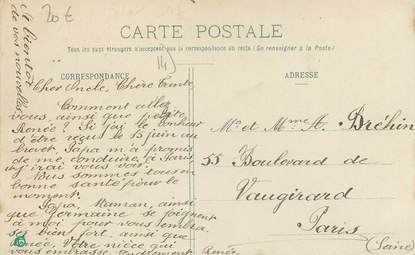 20€
CARTE POSTALE
Tous les pays étrangers n'acceptent pas la correspondance au recto (Se renseigner à la Poste)
CORRESPONDANCE
ADRESSE
Cher Oncle, Chère Tante
Comment allez
vous, ainsi que petite
Renée? Si j'ai le bonheur
d'être reçue le 15 juin au
brevet. Papa m'a promis
de me conduire à Paris
et j'irai vous voir.
Nous sommes tous en
bonne santé pour le
moment.
Papa, Maman, ainsi
que Germaine se joignent
à moi pour vous embra
ser bien fort, ainsi que
Renée, Votre nièce qui
vous embrasse tendrement
Renée
A bientôt
de vos nouvelles
Mr et Mme A. Bréhin
55 Boulevard de
Vaugirard
Paris
(Seine)